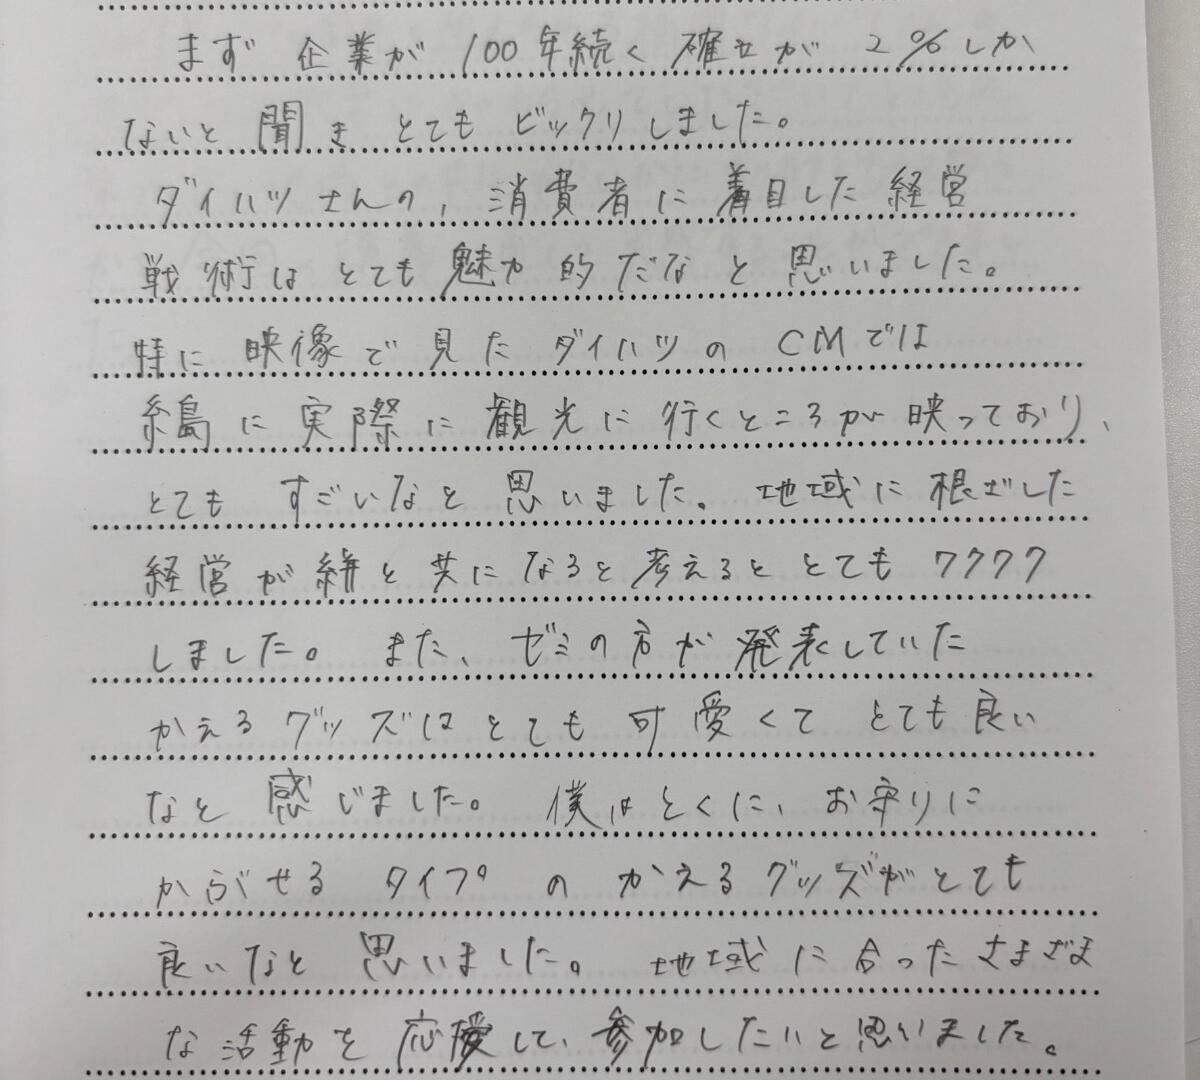 まず 企業が 100年続く 確立が 2%しか
ないと 聞き とても ビックリしました。
ダイハツさんの、消費者に着目した経営
戦術は とても 魅力的だなと思いました。
特に 映像で見たダイハツの CMでは
糸島に実際に観光に行くところが映っており、
とても すごいなと 思いました。地域に根ざした
経営が絆と共になると考えると とても ワクワク
しました。 また、ゼミの方が発表していた
かえるグッズはとても可愛くて とても良い
なと 感じました。 僕はとくに、お守りに
かぶせる タイプ の かえるグッズがとても
良いなと 思いました。 地域に合ったさまざま
な活動を応援して、参加したいと思いました。